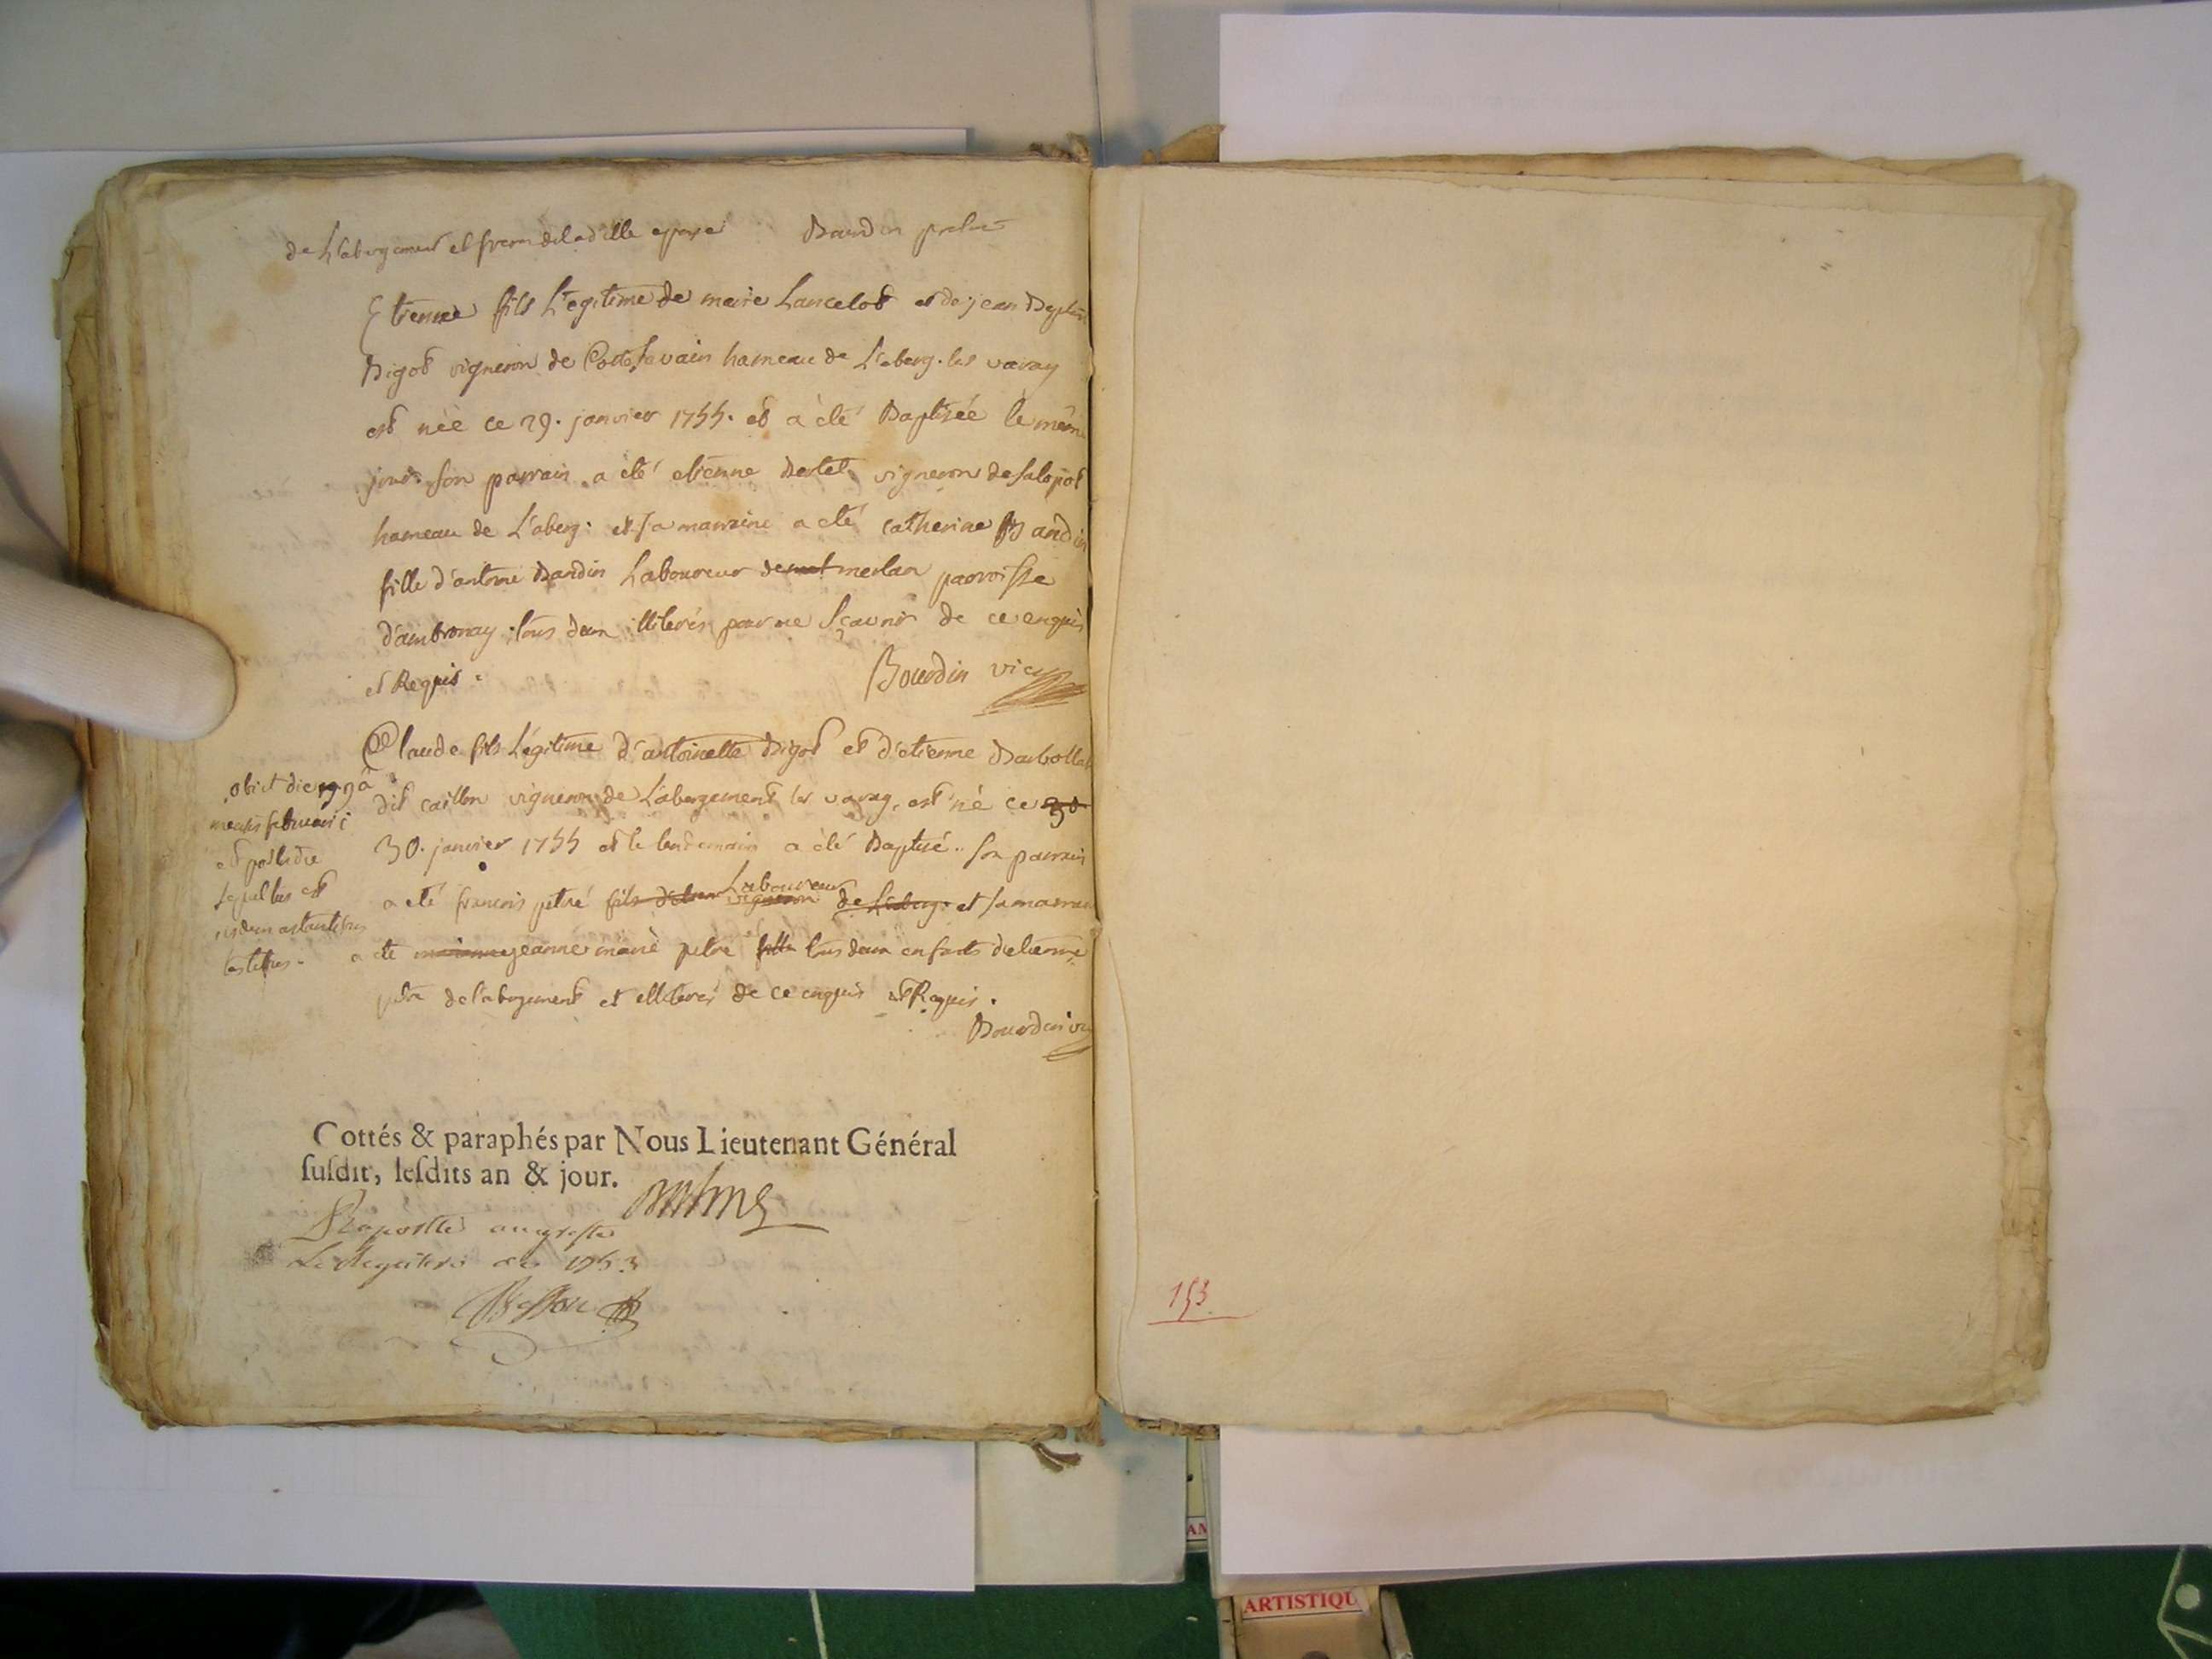 de L'abergement et frere de lad. ille epouse Baudin
Etienne fils Légitime de marie Lancelot et de jean
Bigot vigneron de hameau de L'aberg. les varay
est néè ce 29. janvier 1755. et a été Baptisée le même
jour. son parrain a été etienne vigneron de salopot
hameau de L'aberg: et sa marraine a eté catherine
fille d'antoine Laboureur de merlan parroisse
d'ambronay. tous deux illiterés pour ne sçavoir de ce enquis
et Requis. Bourdin vic
Claude fils Légitime d'antoinette Bigot et d'etienne
dit caillon vigneron de L'abergement les varay, est né ce 30
30. janvier 1755 et le lendemain a été Baptisé. son parrain
a eté francois petré fils Laboureur vigneron de L'aberg. et sa
a eté jeanne marie petre fille tous deux enfants d'etienne
petre de l'abergement et illiterés de ce enquis et Requis.
Bourdin vic
obiit die 19 9a
mensis februarii
et postridie
sepultus est
testes.
Cottés & paraphés par Nous Lieutenant Général
susdit, lesdits an & jour.
Raportté au greffe
Le Registre de 1753
153
ARTISTIQU